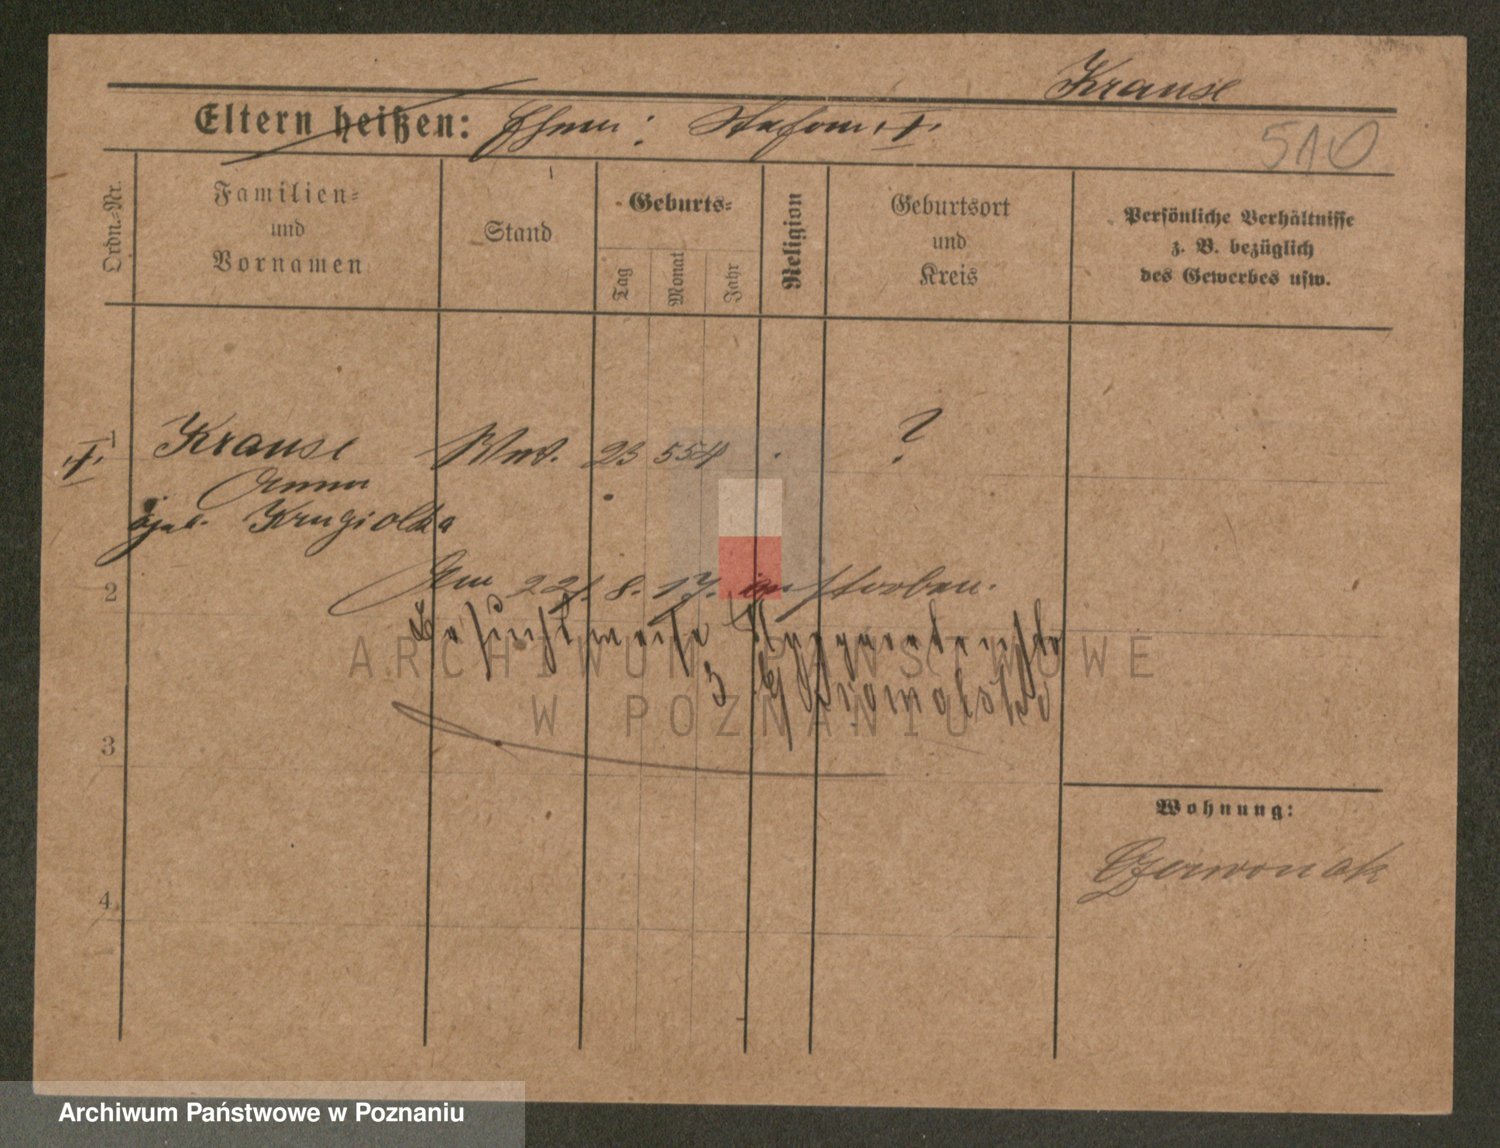 Krause
Eltern heißen: Ehem: Stefan †
510
Ordn.-Nr.
Familien-
und
Vornamen
Stand
Geburts-
Tag
Monat
Jahr
Religion
Geburtsort
und
Kreis
Persönliche Verhältnisse
z. B. bezüglich
des Gewerbes usw.
1
† Krause Wwe. 23 5 54 ?
Anna
geb. Krugiolka
2
Am 22. 8. 17. gestorben.
3
Wohnung:
Czerwonak
4
ARCHIWUM PAŃSTWOWE
W POZNANIU
Archiwum Państwowe w Poznaniu